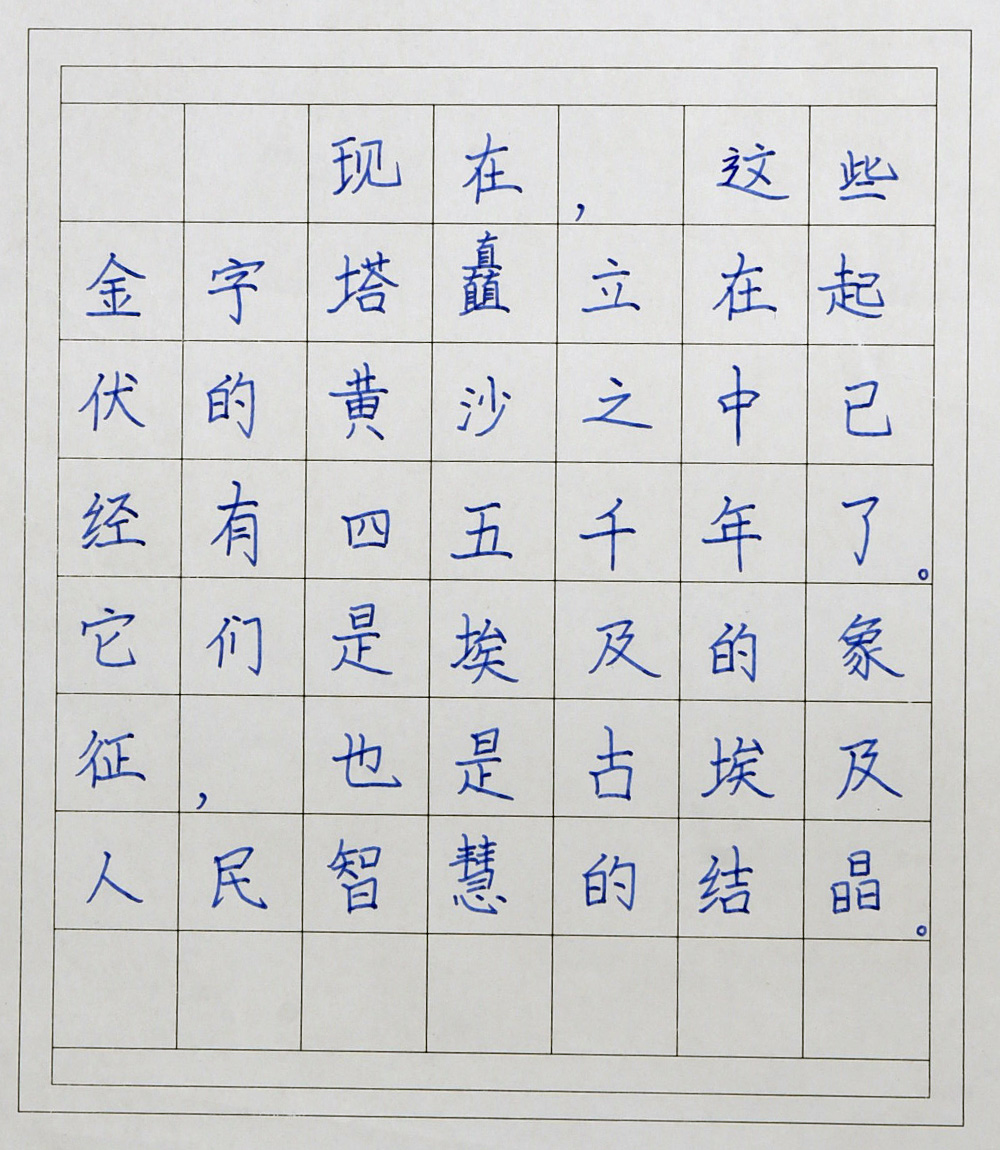 现在，这些
金字塔矗立在起
伏的黄沙之中已
经有四五千年了。
它们是埃及的象
征，也是古埃及
人民智慧的结晶。